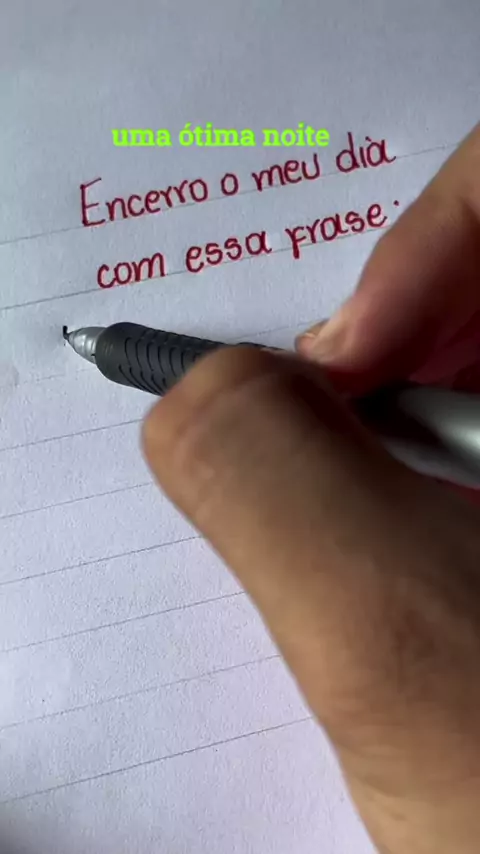 uma ótima noite
Encerro o meu dia
com essa frase: